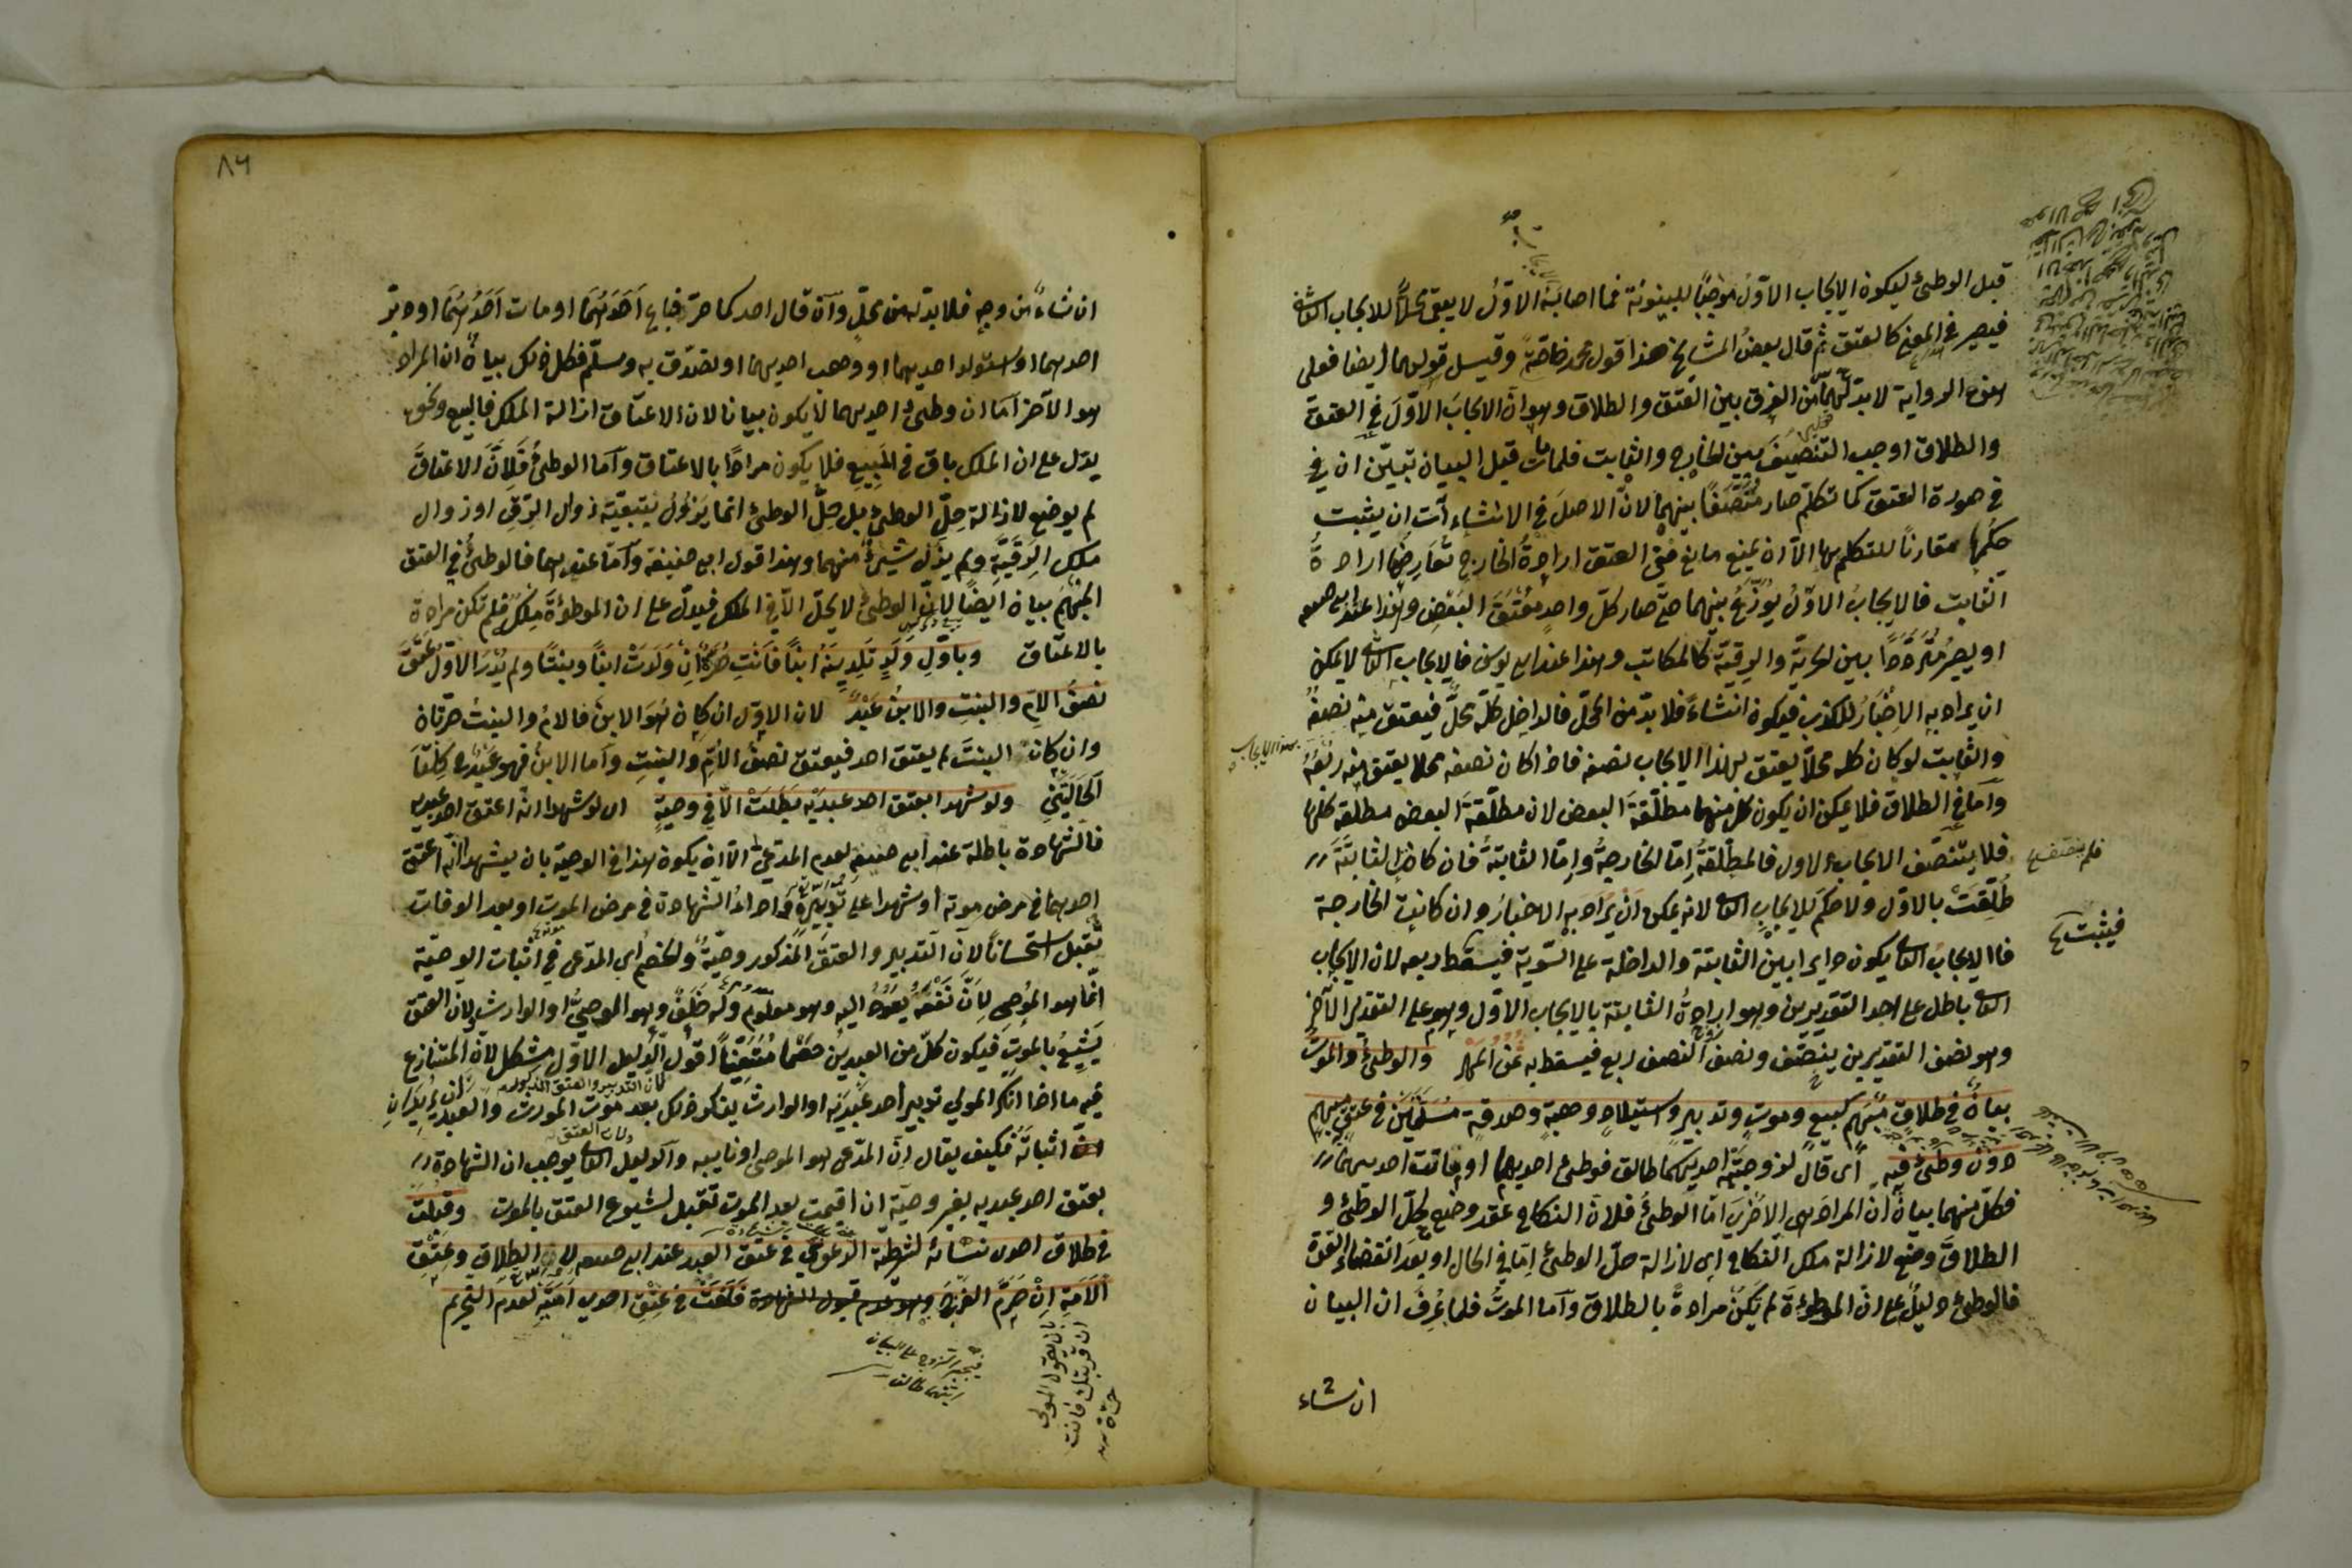 قبل الوطئ ليكون الايجاب الاوّل موجبًا للبينونة فما اصابه الاوّل لا يبقى محلًّا للايجاب الثانى
فيصير فى المعنى كالعتق ثم قال بعض المشايخ هذا قول محمد خاصّةً وقيل قولهما ايضا فعلى
هذه الرواية لا بد لهما من الفرق بين العتق والطلاق وهو ان الايجاب الاوّل فى العتق
والطلاق اوجب التنصيف بين الخارج والثابت فلما مات قبل البيان تبيّن ان فى
فى صورة العتق كما تكلم صار متنصّفًا بينهما لانّ الاصل فى الانشاءات ان يثبت
حكمها مقارنًا للتكلم بها الا ان يمنع مانع ففى العتق ارادة الخارج تعارضها ارادة
الثابت فالايجاب الاوّل يوزّع بينهما حتى صار كلّ واحدٍ معتق البعض وهذا عند ابى حنيفه
او يصير متردّدًا بين الحرية والرقيّة كالمكاتب وهذا عند ابى يوسف فالايجاب الثانى لا يمكن
ان يراد به الاخبار للكذب فيكون انشاءً فلا بدّ من المحل فالداخل كلّه محلّ فيعتق منه نصفه
والثابت لو كان كله محلًّا يعتق بهذا الايجاب نصفه فاذا كان نصفه محلا يعتق منه ربعه
بهذا الايجاب
وامّا فى الطلاق فلا يمكن ان يكون كل منهما مطلّقة البعض لان مطلّقة البعض مطلقة كلها
فلا يتنصّف الايجاب الاول فالمطلّقة امّا الخارجة وامّا الثابتة فان كان الثابتة
طلّقت بالاوّل ولا حكم للايجاب الثانى لانه يمكن ان يراد به الاخبار وان كانت الخارجة
فيثبت
فالايجاب الثانى يكون دايرا بين الثابتة والداخلة على السّوية فيسقط ربعه لان الايجاب
الثانى باطل على احد التقديرين وهو ارادة الثابتة بالايجاب الاوّل وصح على التقدير الآخر
وهو نصف التقديرين ينصّف ونصف النصف ربع فيسقط به ثمن المهر والوطئ والموت
بيان فى طلاق مبهم كبيع وموت وتدبير واستيلاد وهبة وصدقة مسلّمتين فى عتق مبهم
دون وطئ فيه اى قال لزوجتيه احديكما طالق فوطئ احديهما او ماتت احديهما
فكلّ منهما بيان ان المراد هى الاخرى امّا الوطئ فلان النكاح عقد وضع لحلّ الوطئ و
الطلاق وضع لازالة ملك النكاح اى لازالة حلّ الوطئ امّا فى الحال او بعد انقضاء العدة
فالوطئ دليل على ان الموطوءة لم تكن مرادةً بالطلاق وامّا الموت فلما عرف ان البيان
ان شاء
٨٦
ان شاءً من وجه فلا بد له من محلّ وان قال احدكما حر فباع احدهما او مات احدهما او دبّر
احدهما او استولد احديهما او وهب احديهما او تصدّق به وسلّم فكل ذلك بيان ان المراد
هو الآخر امّا ان وطئ احديهما لا يكون بيانا لان الاعتاق ازالة الملك فالبيع ونحوه
يدل على ان الملك باق فى المبيع فلا يكون مرادًا بالاعتاق وامّا الوطئ فلانّ الاعتاق
لم يوضع لازالة حلّ الوطئ بل حلّ الوطئ انما يزول بتبعيّة زوال الرقّ او زوال
ملك الرقبة ولم يزل شئ منهما وهذا قول ابى حنيفة وامّا عندهما فالوطئ فى العتق
المبهم بيان ايضًا لانّ الوطئ لا يحلّ الّا فى الملك فيدلّ على ان الموطوءة ملك فلم تكن مرادة
بالاعتاق وباوّل ولدٍ تلدينه ابنًا فانت حرّة ان ولدت ابنًا وبنتًا ولم يدر الاوّل عتق
نصف الام والبنت والابن عبدٌ لان الاوّل ان كان هو الابن فالام والبنت حرتان
وان كان البنت لم يعتق احد فيعتق نصف الامّ والبنت وامّا الابن فهو عبد فى كلتا
الحالتين ولو شهدا بعتق احد عبديه بطلت الّا فى وصيةٍ اى لو شهدا انّه اعتق احد عبديه
فالشهادة باطلة عند ابى حنيفه لعدم المدّعى الّا ان يكون هذا فى الوصية بان يشهد انه اعتق
احدهما فى مرض موته او شهدا على تدبيره واداء الشهادة فى مرض الموت او بعد الوفات
تقبل استحسانًا لان التدبير والعتق المذكور وصيّة والخصم اى المدّعى فى اثبات الوصيّة
انما هو الموصى لانّ نفعه يعود اليه وهو معلوم وله خلف وهو الموصىّ او الوارث ولان العتق
يشيع بالموت فيكون كلّ من العبدين خصما متعيّنًا اقول الدّليل الاوّل مشكل لانّ المتنازع
فيه ما اذا انكر المولى تدبير احد عبديه او الوارث ينكر ذلك بعد موت المورث والعبدان يريدان
اثباته فكيف يقال انّ المدّعى هو الموصى او نايبه والدليل الثانى يوجب ان الشهادة
بعتق احد عبديه بغير وصيّة ان اقيمت بعد الموت تقبل لشيوع العتق بالموت وقبلت
فى طلاق احدى نسائه لشرطيّة الدّعوى فى عتق العبد عند ابى حنيفه لا فى الطلاق وعتق
الامة ان حرّم الفرج فلغت فى عتق احدى امتيه لعدم التحريم
فيجبر الزوج على البيان
ايتهما طالق
بان يقول المولى
ان قربتك فانت
حرّة